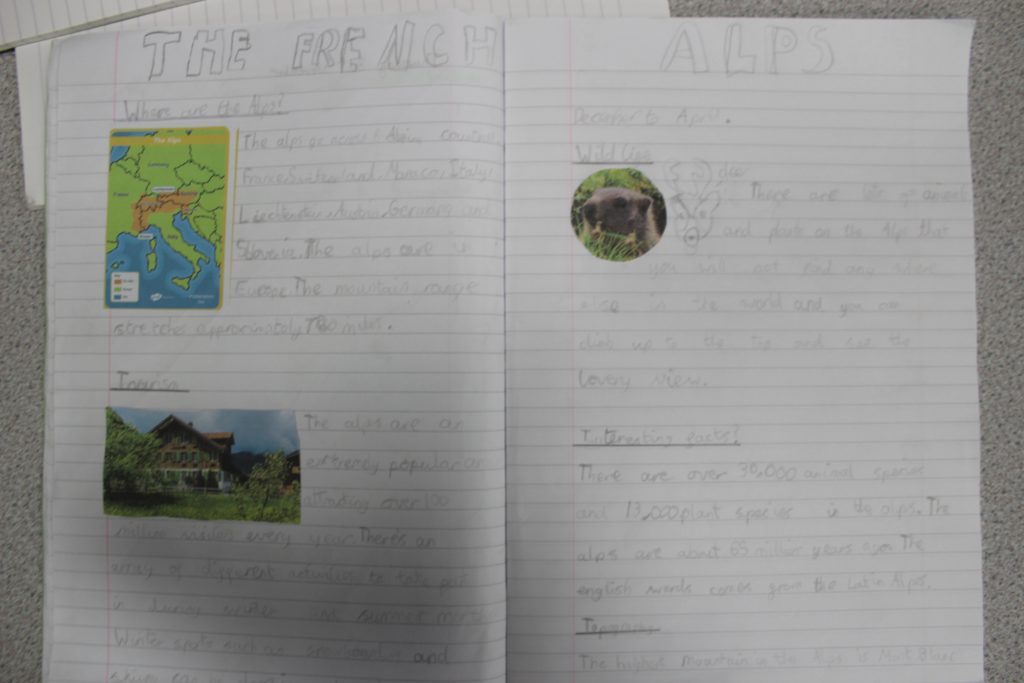 THE FRENCH ALPS
Where are the Alps?
The alps go across 8 countries
France, Switzerland, Monaco, Italy,
Liechtenstein, Austria, Germany and
Slovenia. The alps are in
Europe. The mountain range
stretches approximately 780 miles.
The Alps
Germany
France
Italy
Tourism
The alps are an
extremely popular
attracting over 100
million visitors every year. There's an
array of different activities to take part
in during winter and summer months
Winter sports such as snowboarding and
December to April.
Wild lies
dee
There are lots of animals
and plants on the Alps that
you will not find any where
else in the world and you can
climb up to the top and see the
lovery view.
Interesting facts?
There are over 30,000 animal species
and 13,000 plant species in the alps. The
alps are about 65 million years ago. The
english words comes from the Latin Alps.
Topography
The highest mountain in the Alps is Mont Blanc